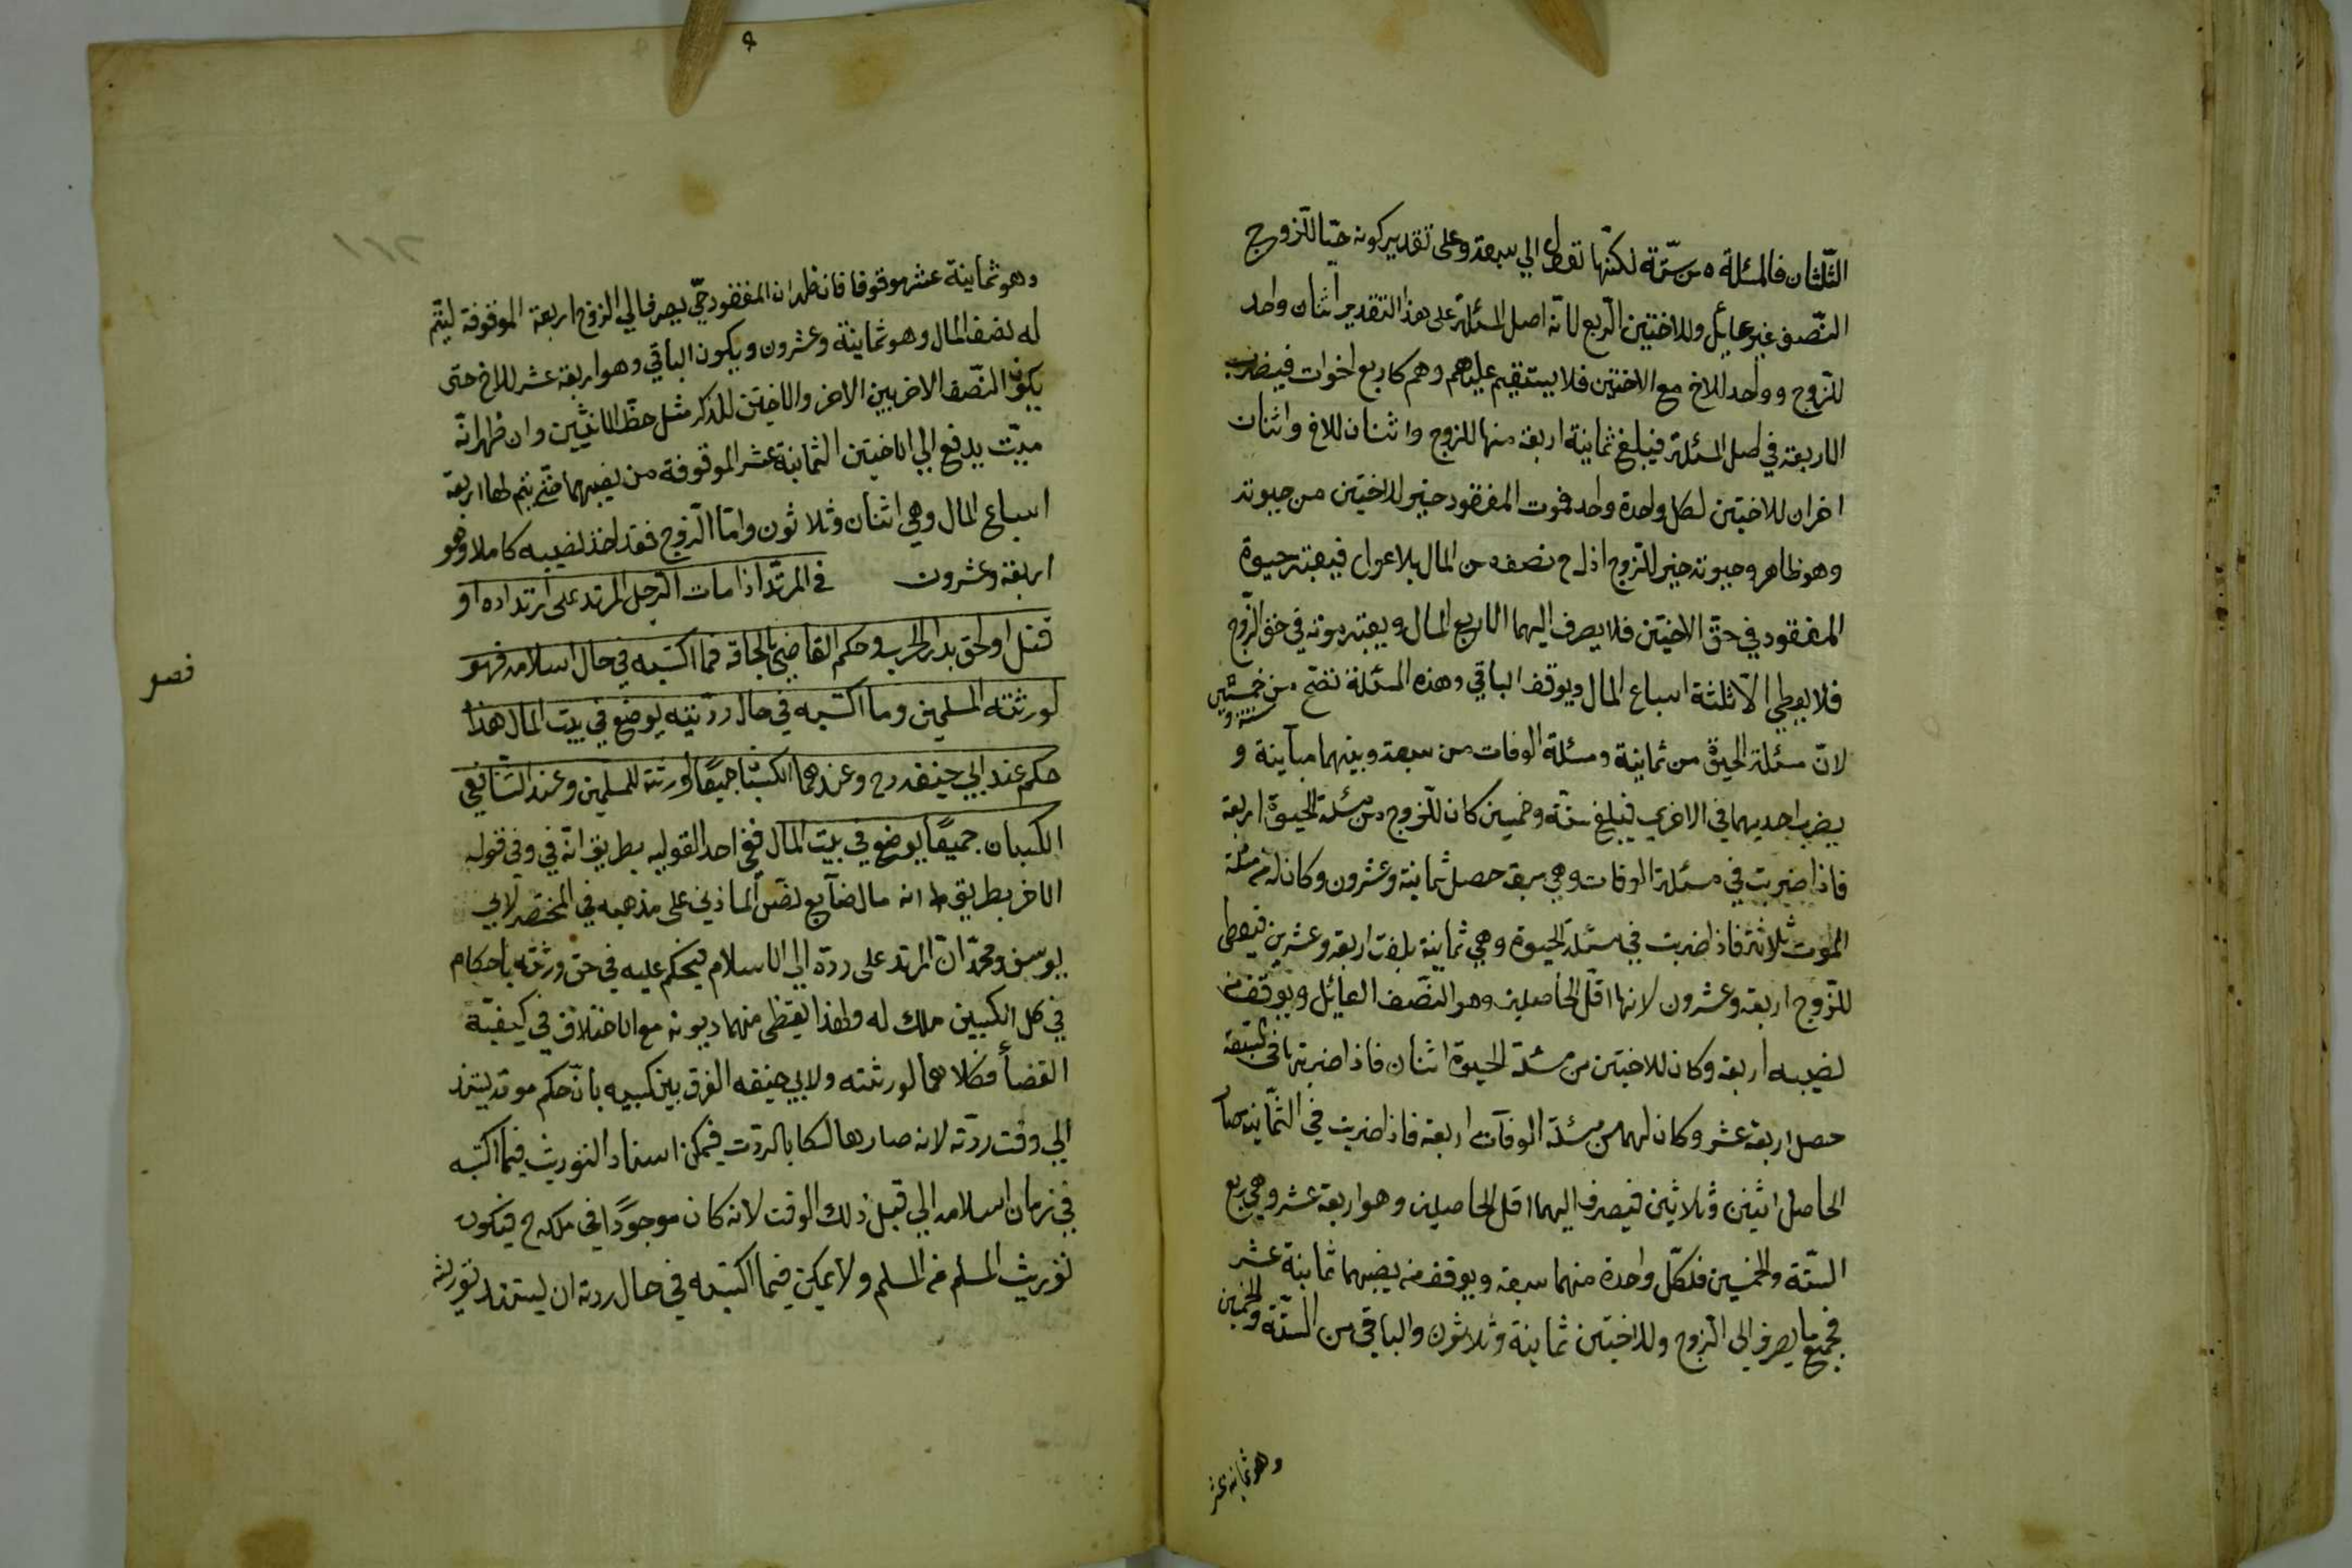 الثّلثان فالمسئلة من ستّة لكنّها تعول الي سبعة وعلى تقدير كونه حيّا للزّوج
النّصف غير عايل وللاختين الرّبع لانّه اصل المسئلة على هذا التقدير اثنان واحد
للزّوج وواحد للاخ مع الاختين فلا يستقيم عليهم وهم كاربع اخوات فيضرب
الاربعة في اصل المسئلة فيبلغ ثمانية اربعة منها للزوج واثنان للاخ واثنان
اخران للاختين لكل واحدة واحد فموت المفقود خير للاختين من حيوته
وهو ظاهر وحيوته خير للزوج اذ له ح نصف من المال بلا عول فيعتبر حيوة
المفقود في حقّ الاختين فلا يصرف اليهما الا ربع المال ويعتبر موته في حق الزّوج
فلا يعطي الّا ثلثة اسباع المال ويوقف الباقي وهذه المسئلة تصحّ من ستة و خمسين
لانّ مسئلة الحيوة من ثمانية ومسئلة الوفات من سبعة وبينهما مباينة و
يضرب احديهما في الاخري فيبلغ ستّة وخمسين كان للزوج من مسئلة الحيوة اربعة
فاذا ضربت في مسئلة الوفات وهي سبعة حصل ثمانية وعشرون وكان له من مسئلة
الموت ثلاثة فاذا ضربت في مسئلة الحيوة وهي ثمانية بلغت اربعة وعشرين فيعطى
للزّوج اربعة وعشرون لانها اقلّ الحاصلين وهو النّصف العائل ويوقف من
نصيبه اربعة وكان للاختين من مسئلة الحيوة اثنان فاذا ضربتها في السبعة
حصل اربعة عشر وكان لهما من مسئلة الوفات اربعة فاذا ضربت في الثّمانية صار
الحاصل اثنين وثلاثين فيصرف اليهما اقل الحاصلين وهو اربعة عشر وهي ربع
الستّة والخمسين فلكلّ واحدة منهما سبعة ويوقف من نصيبهما ثمانية عشر
فجميع ما يصرف الى الزوج وللاختين ثمانية وثلاثون والباقي من الستّة والخمسين
وهو ثمانية عشر
وهو ثمانية عشر موقوفا فان ظهر ان المفقود حيّ يصرف الي الزوج اربعة الموقوفة ليتم
له نصف المال وهو ثمانية وعشرون ويكون الباقي وهو اربعة عشر للاخ حتى
يكون النّصف الاخر بين الاخ والاختين للذكر مثل حظّ الانثيين وان ظهر انّه
ميّت يدفع الي الاختين الثمانية عشر الموقوفة من نصيبهما حتّى يتم لهما اربعة
اسباع المال وهي اثنان وثلاثون وامّا الزوج فقد اخذ نصيبه كاملا وهو
اربعة وعشرون في المرتدّ اذا مات الرّجل المرتد على ارتداده او
قتل او لحق بدار الحرب وحكم القاضي بالحاقه فما اكتسبه في حال اسلامه فهو
فصل
لورثته المسلمين وما اكتسبه في حال ردّته يوضع في بيت المال هذا
حكم عند ابي حنيفه رح وعندهما الكسبان جميعًا لورثته المسلمين وعند الشّافعي
الكسبان جميعًا يوضع في بيت المال ففي احد القوليه بطريق انّه في وفي قوله
الاخر بطريق انه مال ضآيع على مذهبه في المختصر لابي
يوسف ومحمّد انّ المرتد على ردّه الي الاسلام فيحكم عليه في حق ورثته باحكام
في كل الكسبين ملك له ولهذا يقضى منهما ديونه مع الاختلاف في كيفيّة
القضأ فكلاهما لورثته ولابي حنيفه الفرق بين كسبيه بانّ حكم موته يستند
الي وقت ردّته لانه صار هالكا بالردّت فيمكن اسناد التوريث فيما اكتسبه
في زمان اسلامه الي قبل ذلك الوقت لانه كان موجودًا في ملكه ح فيكون
توريث المسلم من المسلم ولا يمكن فيما اكتسبه في حال ردته ان يستند توريثه